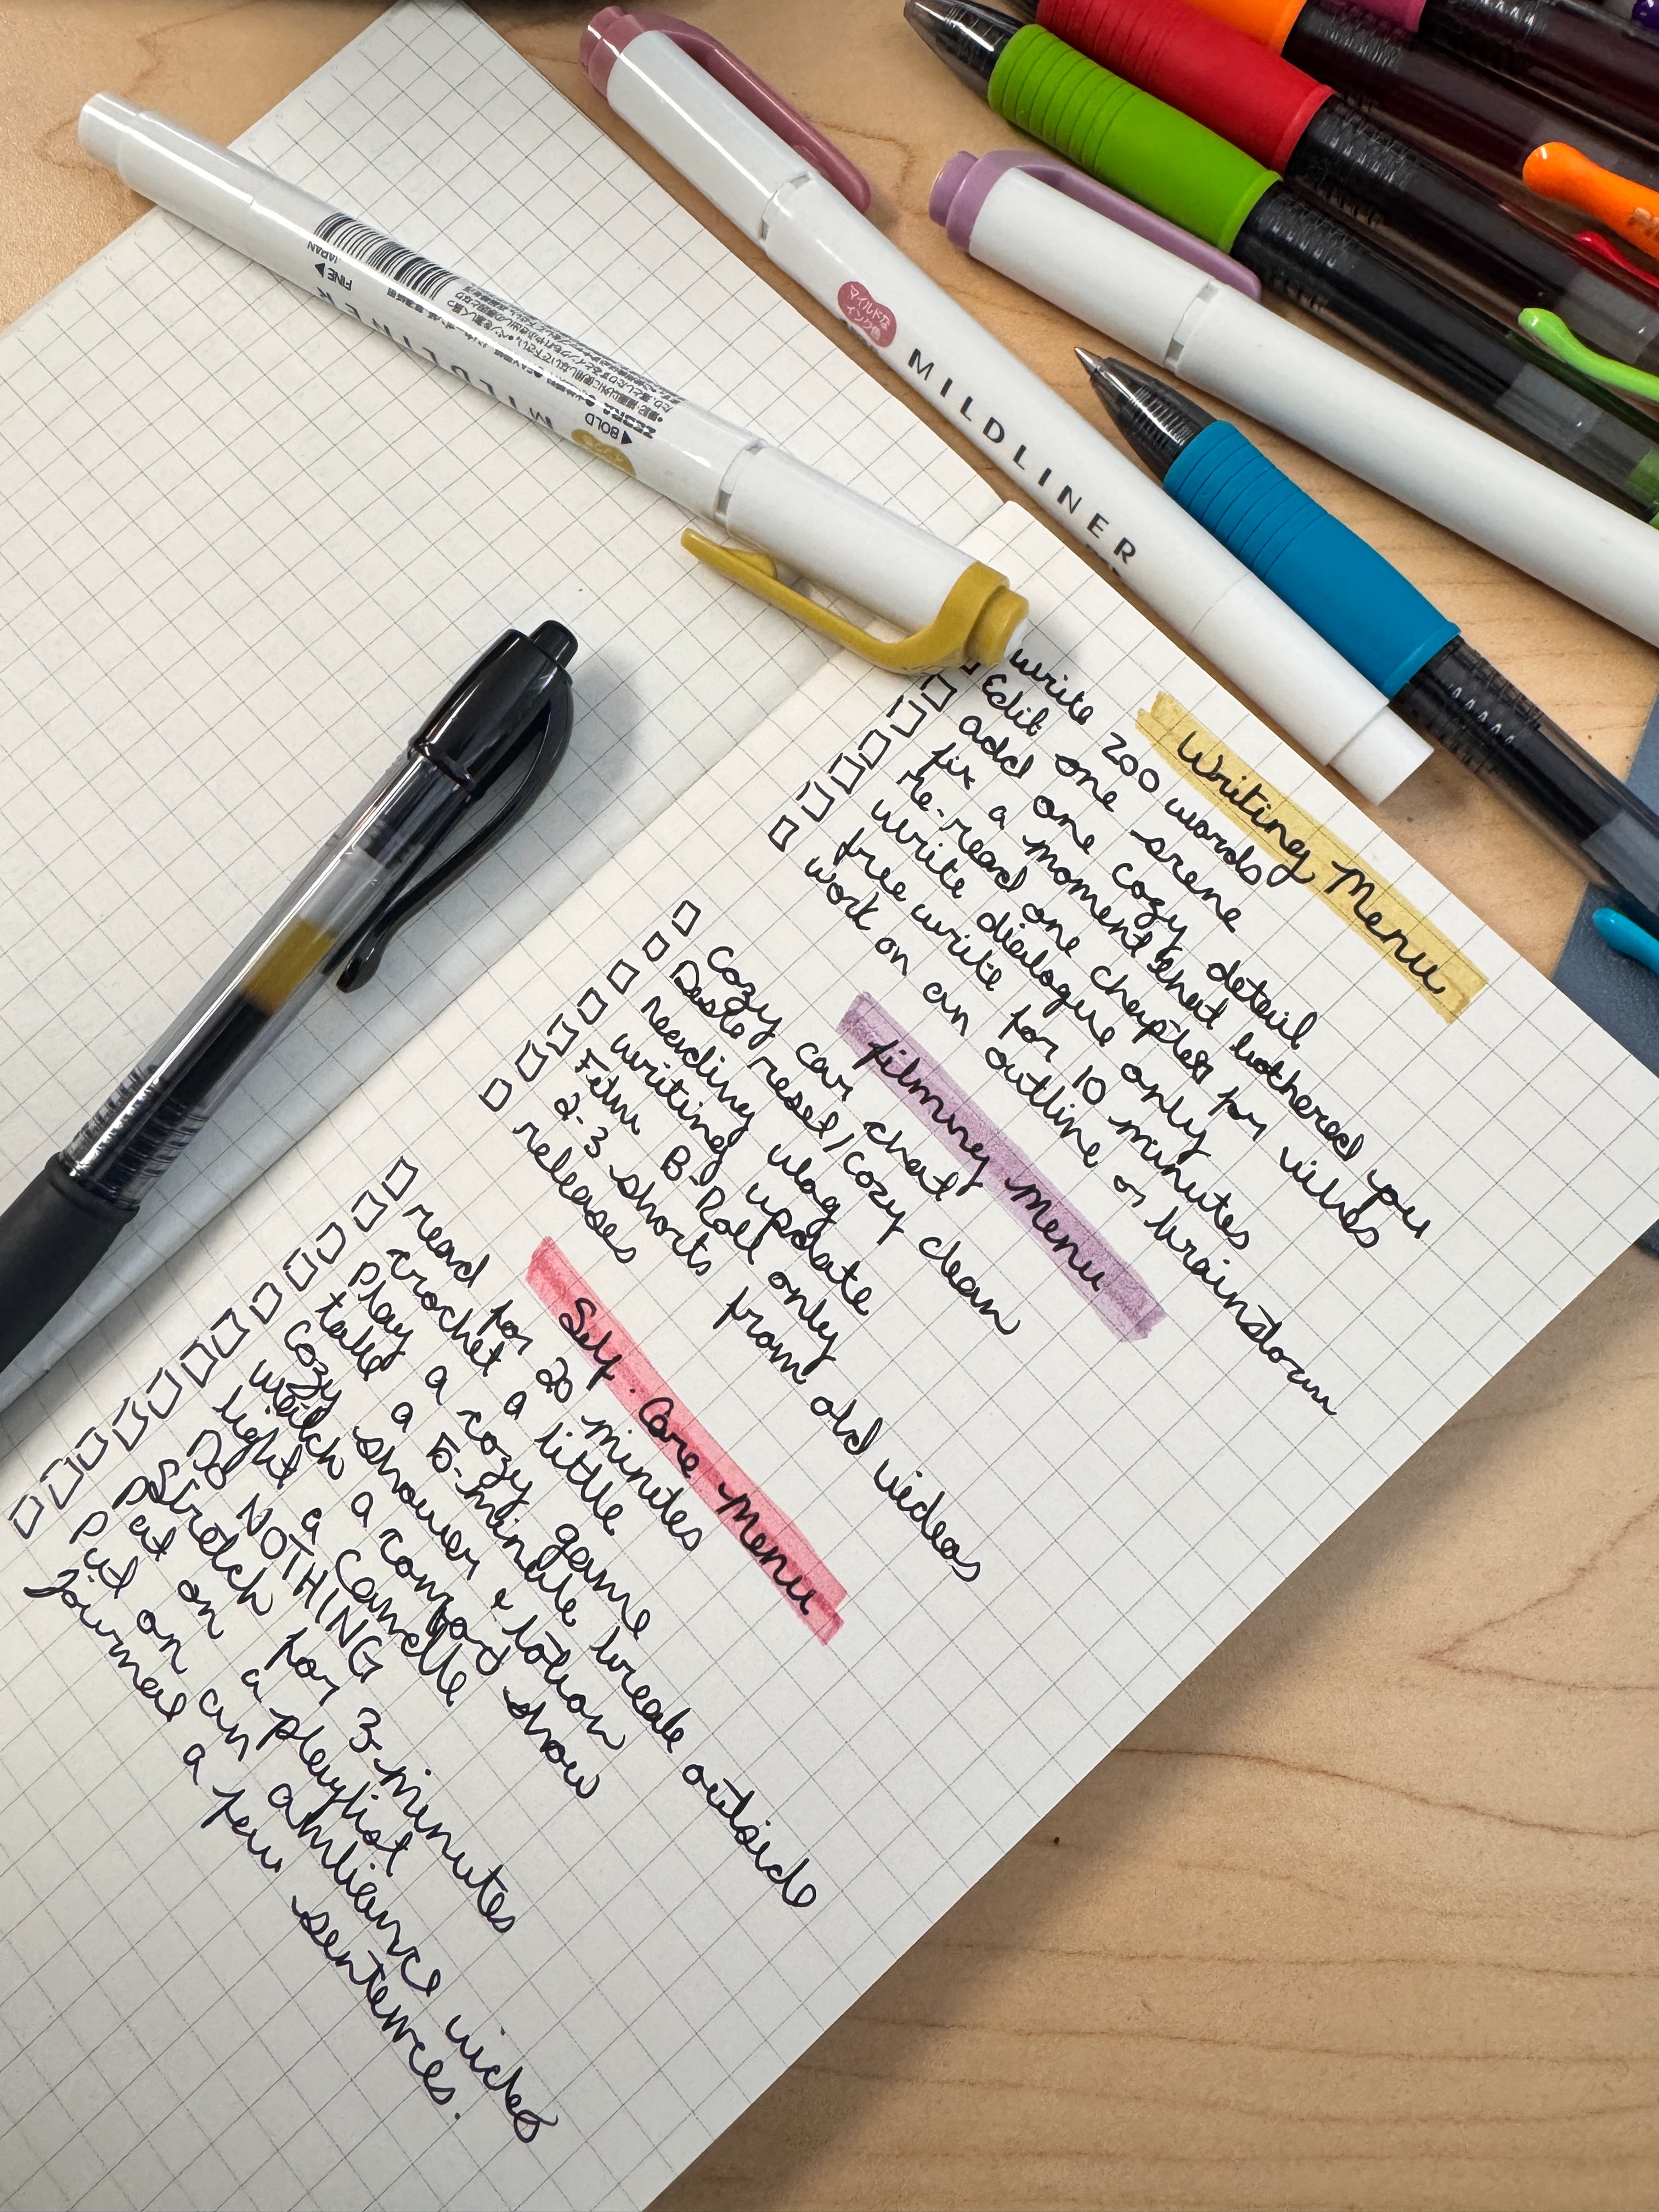 Writing Menu
write 200 words
Edit one srene
add one cozy detail
fix a moment that bothered you
Re-read one chapter for vibes
write dialogue only
free write for 10 minutes
work on an outline or brainstorm
filming menu
Cozy car chat
Deste reset/cozy clean
reading vlog
writing update
Film B-Roll only
2-3 shorts from old videos
releases
Self-Care Menu
read for 20 minutes
crochet a little
play a cozy game
take a 5-minute break outside
Cozy shower & lotion
watch a comfort show
light a candle
Do NOTHING
Stretch for 3-minutes
put on a playlist
put on an ambience video
Journal a few sentences.
MILDLINER
マイルドな
インク色
MILDLINER
ZEBRA
BOLD
FINE
JAPAN